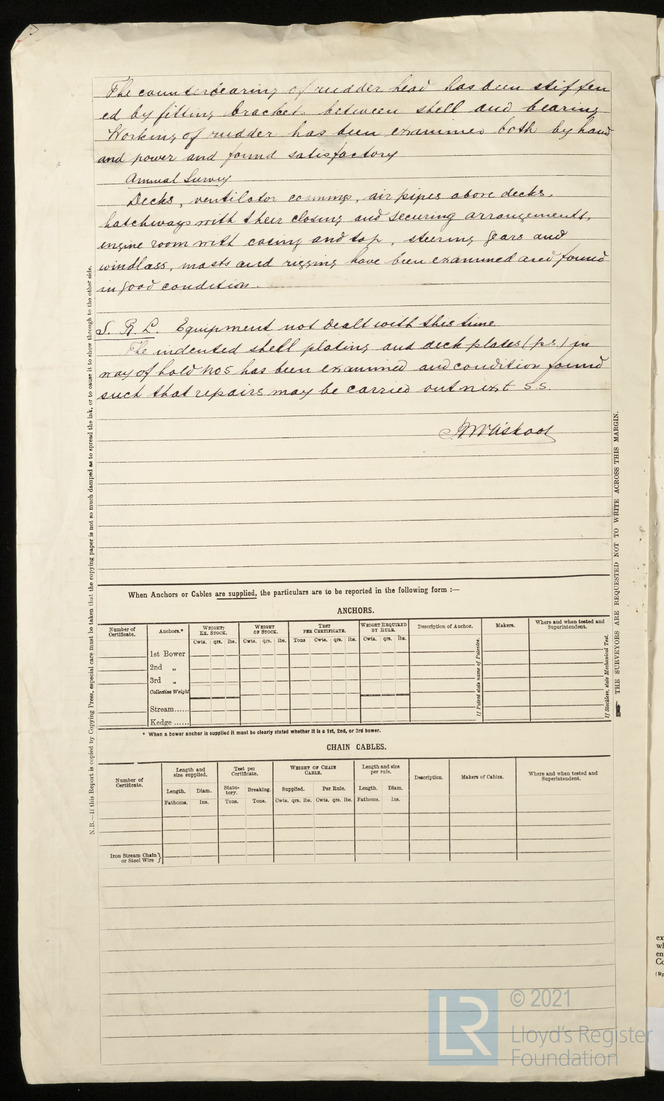 The counterbearing of rudder head has been stiffen
ed by fitting brackets between shell and bearing
Working of rudder has been examined both by hand
and power and found satisfactory
Annual Survey
Decks, ventilator coamings, air pipes above decks,
hatchways with their closing and securing arrangements,
engine room with casing and top, steering gears and
windlass, masts and rigging have been examined and found
in good condition.
Equipment not dealt with this time
The indented shell plating and deck plates (ps) in
way of hold No5 has been examined and condition found
such that repairs may be carried out next S.S.
When Anchors or Cables are supplied, the particulars are to be reported in the following form :—
ANCHORS.
Number of Certificate. Anchors.* Weight: Ex. Stock. Weight of Stock. Test per Certificate. Weight Required by Rule. Description of Anchor. Makers. Where and when tested and Superintendent.
Cwts. qrs. lbs. Cwts. qrs. lbs. Tons Cwt. qrs. lbs. Cwts. qrs. lbs.
1st Bower
2nd „
3rd „
Collective Weight
Stream......
Kedge ......
If Patent state name of Patentee.
If Stockless, state Mechanical Test.
* When a bower anchor is supplied it must be clearly stated whether it is a 1st, 2nd, or 3rd bower.
CHAIN CABLES.
Number of Certificate. Length and size supplied. Test per Certificate. Weight of Chain Cable. Length and size per rule. Description. Makers of Cables. Where and when tested and Superintendent.
Length. Diam. Statutory. Breaking. Supplied. Per Rule. Length. Diam.
Fathoms. Ins. Tons. Tons. Cwts. qrs. lbs. Cwts. qrs. lbs. Fathoms. Ins.
Iron Stream Chain
or Steel Wire }
N.B.—If this Report is copied by Copying Press, especial care must be taken that the copying paper is not so much damped as to spread the ink, or to cause it to show through to the other side.
THE SURVEYORS ARE REQUESTED NOT TO WRITE ACROSS THIS MARGIN.
LR
© 2021
Lloyd's Register
Foundation